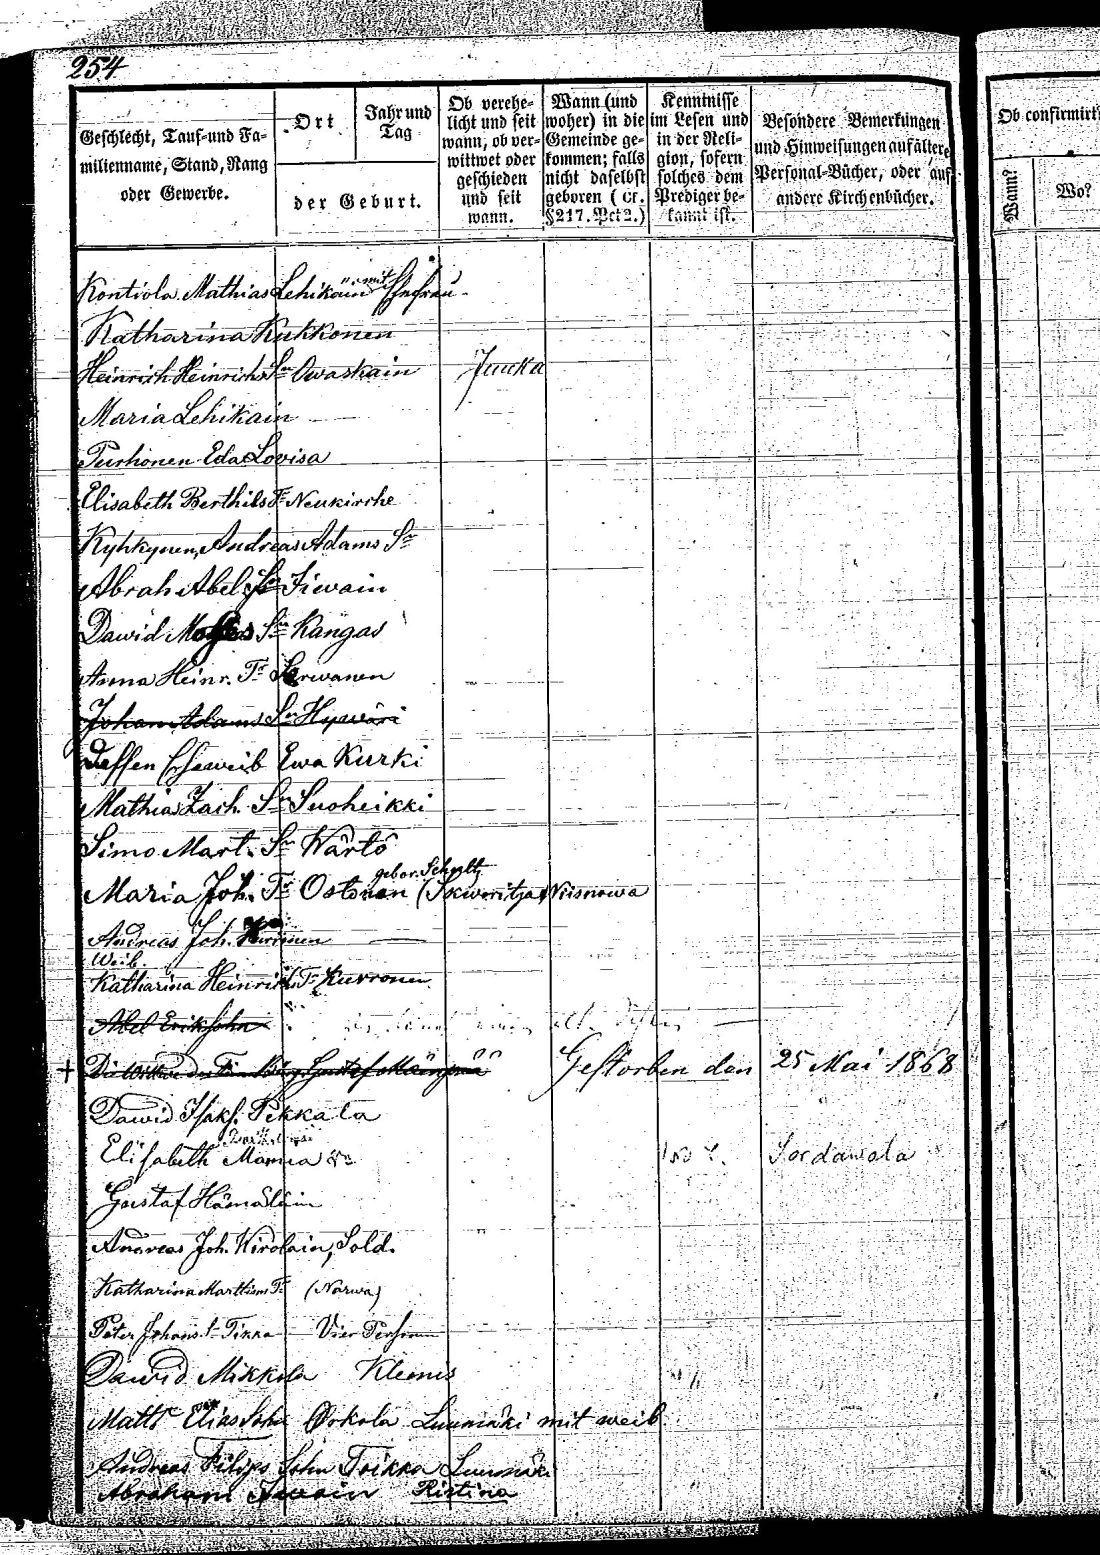 254
Geschlecht, Tauf- und Fa-
milienname, Stand, Rang
oder Gewerbe.
Ort
Jahr und
Tag
der Geburt.
Ob verehe-
licht und seit
wann, ob ver-
wittwet oder
geschieden
und seit
wann.
Wann (und
woher) in die
Gemeinde ge-
kommen; falls
nicht daselbst
geboren (cr.
§217. Pct 2.)
Kenntnisse
im Lesen und
in der Reli-
gion, sofern
solches dem
Prediger be-
kannt ist.
Besondere Bemerkungen
und Hinweisungen auf ältere
Personal-Bücher, oder auf
andere Kirchenbücher.
Ob confirmirt
Wann?
Wo?
Kontiola Mathias Lehikäin mit Ehefrau
Katharina Kukkonen
Heinrich Heinrichs Sn Owaskain Juuka
Maria Lehikain
Turhonen Eda Lovisa
Elisabeth Berthils Tr Neukirche
Kyhkynen, Andreas Adams Sn
Abrah Abel Sn Fiwain
Dawid Moses Sn Kangas
Anna Heinr. Tr Serwanen
Johan Adams Sn Hypwäri
Dessen Eheweib Ewa Kurki
Mathias Zach. Sn Suoheikki
Simo Mart. Sn Wärtö
gebor. Schultz
Maria Joh. Tr Ostonen (Skworitza
Andreas Joh.
Weib.
Katharina Heinrichs Tr Kurronen
Abel Eriksohn
Die Gustaf Gestorben den 25 Mai 1868
Dawid Isaks. Pekkala
Elisabeth Sordawala
Gustaf Hämäläin
Andreas Joh. Kirolain, Sold.
Katharina Marttins Tr (Narwa)
Peter Johans S. Tikka Vier Person
Dawid Mikkola Klemis
Matts Elias Sohn Orkola Luumäki mit weib
Andreas Filips Sohn Toikka Luumäki
Abraham Awain Ristina